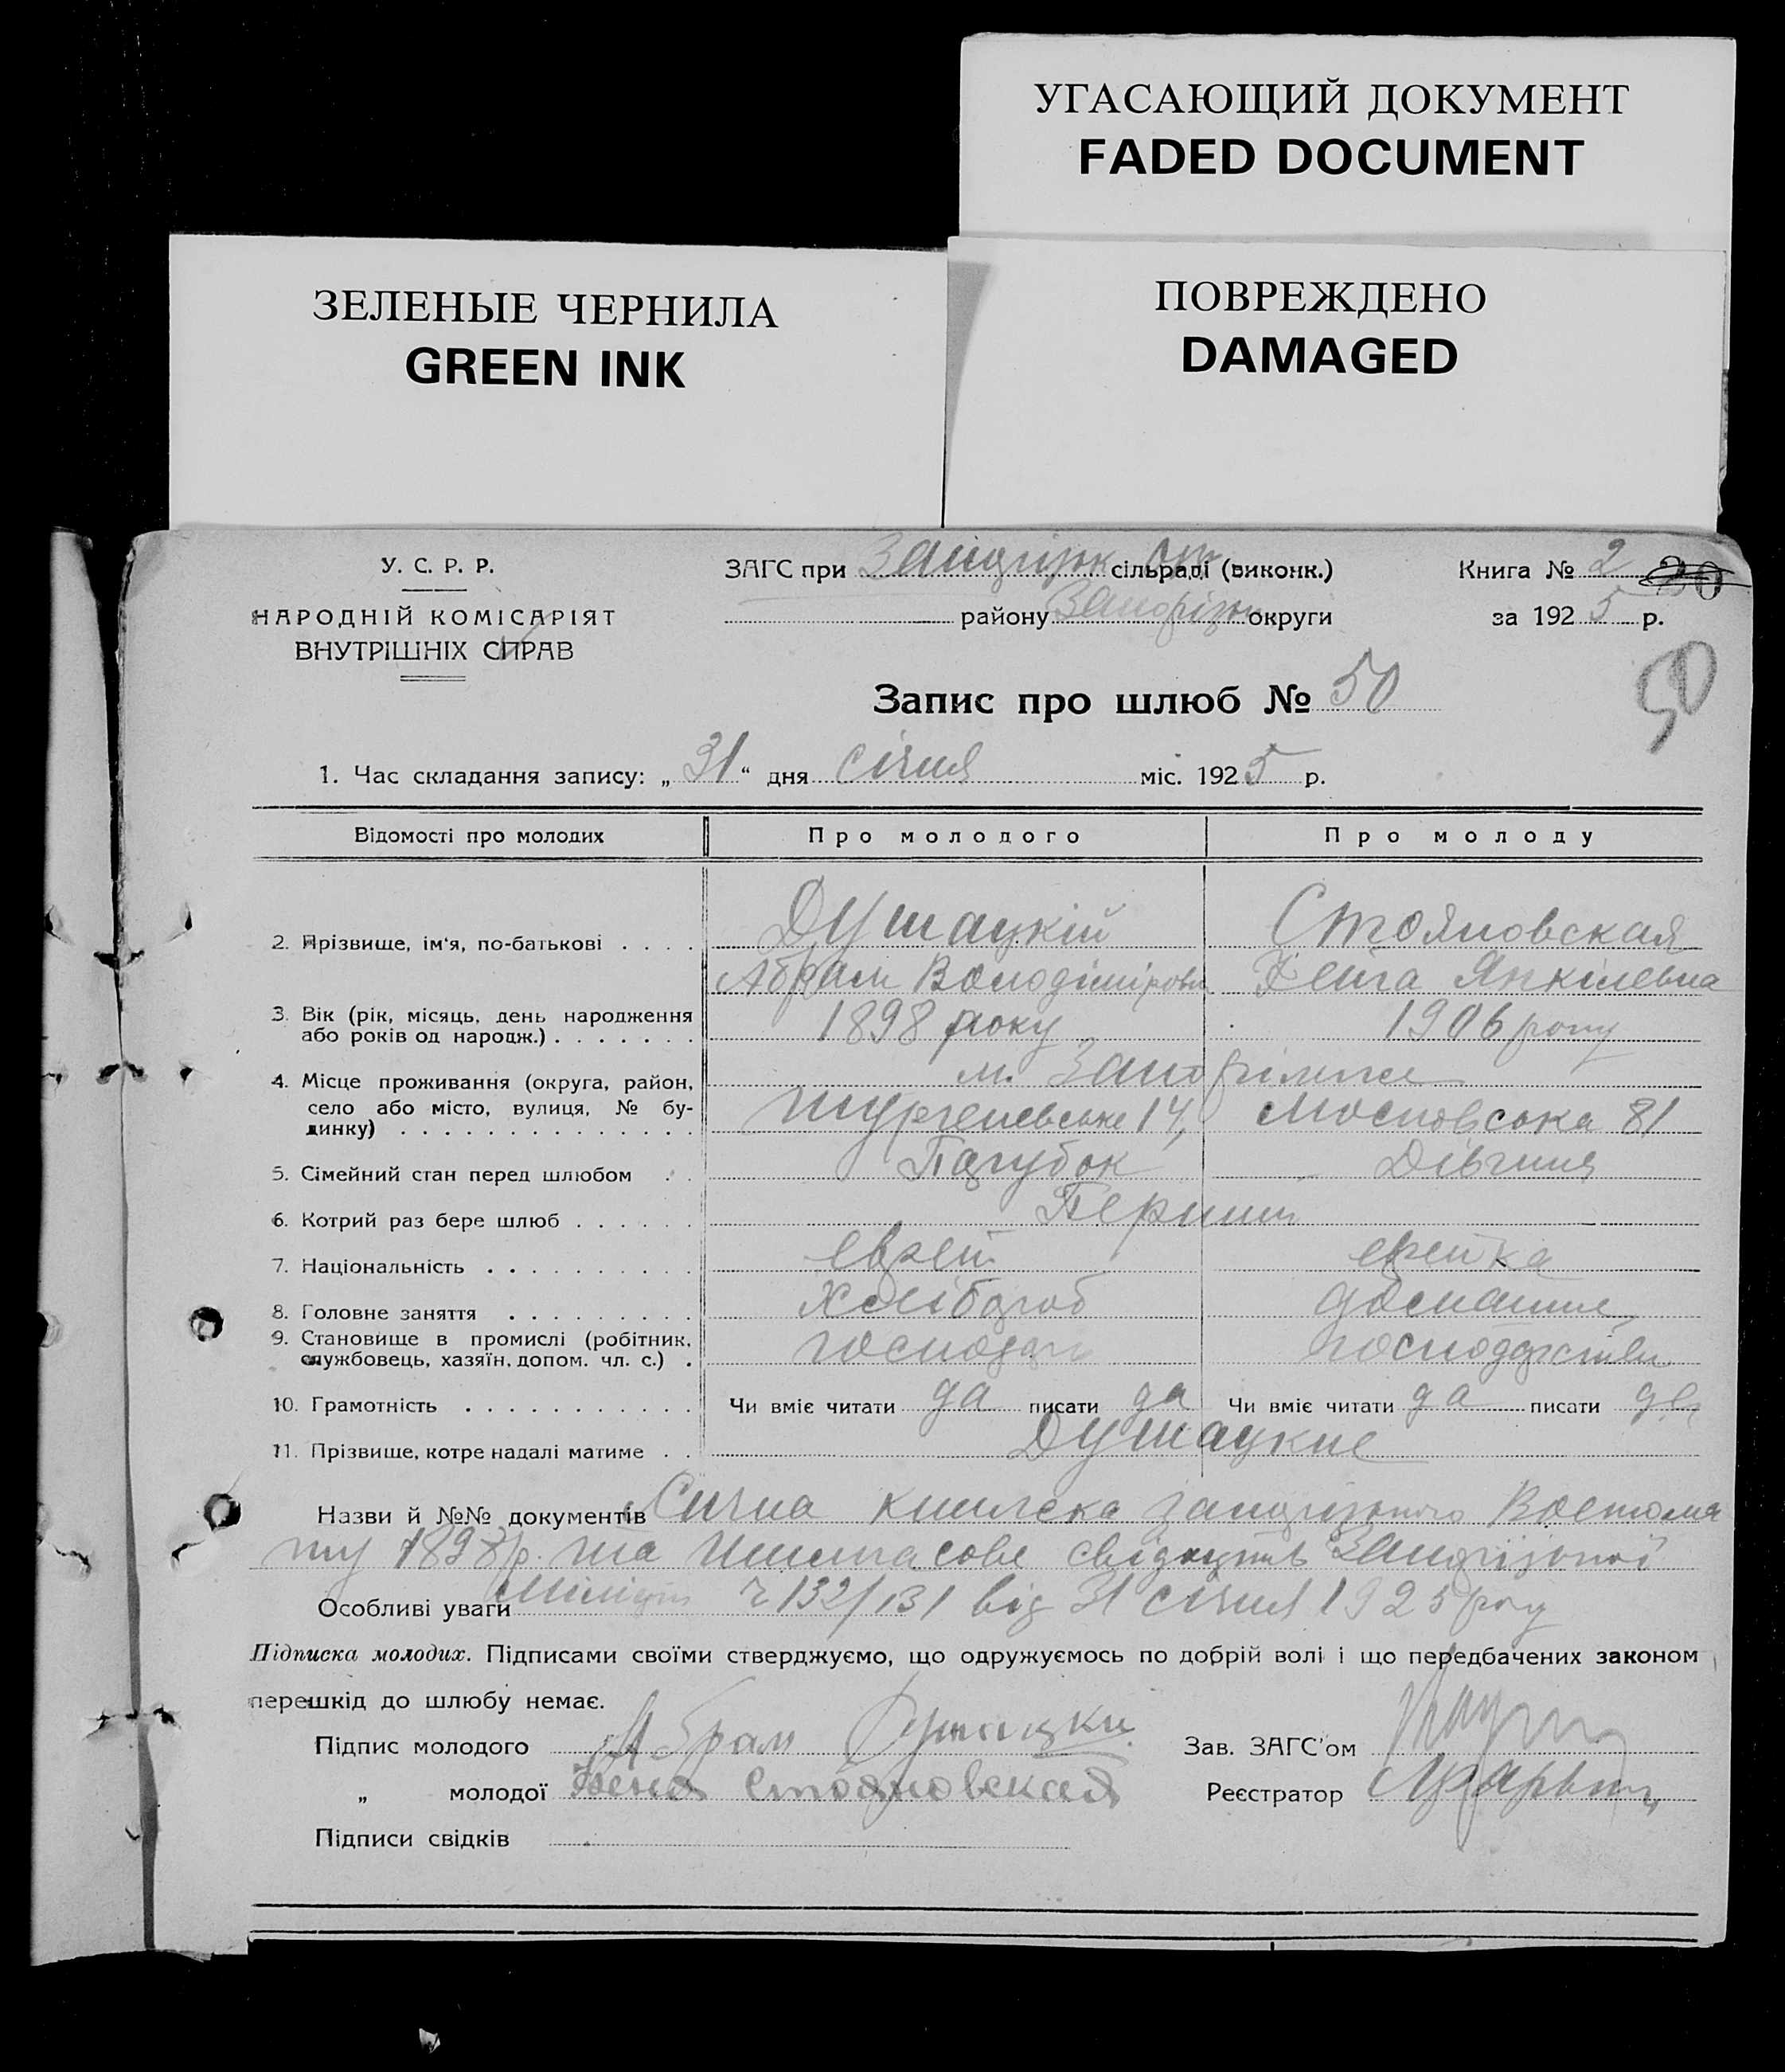 УГАСАЮЩИЙ ДОКУМЕНТ
FADED DOCUMENT
ЗЕЛЕНЫЕ ЧЕРНИЛА
GREEN INK
ПОВРЕЖДЕНО
DAMAGED
У. С. Р. Р.
НАРОДНІЙ КОМІСАРІЯТ
ВНУТРІШНІХ СПРАВ
ЗАГС при сільраді (виконк.)
району округи
Книга № 2 20
за 1925 р.
Запис про шлюб № 50
50
1. Час складання запису: „31“ дня січня міс. 1925 р.
Відомості про молодих Про молодого Про молоду
2. Прізвище, ім'я, по-батькові . . . . Душацкій Стояновская
Абрам Янкілевна
3. Вік (рік, місяць, день народження або років од народж.) . . . . . . . 1898 року 1906 року
4. Місце проживання (округа, район, село або місто, вулиця, № будинку) . . . . . . . . . . . . . . м. Запоріжже
14, Московська 81
5. Сімейний стан перед шлюбом . . Парубок Дівчина
6. Котрий раз бере шлюб . . . . . . Перший
7. Національність . . . . . . . . . . еврей еврейка
8. Головне заняття . . . . . . . . . Хлібороб домашне
9. Становище в промислі (робітник, службовець, хазяїн, допом. чл. с.) . господарство
10. Грамотність . . . . . . . . . . . Чи вміє читати да писати да Чи вміє читати да писати да
11. Прізвище, котре надалі матиме . . Душацкие
Назви й №№ документів книжка
1898 р. та
Особливі уваги 132/131 від 31 січня 1925 року
Підписка молодих. Підписами своїми стверджуємо, що одружуємось по добрій волі і що передбачених законом
перешкід до шлюбу немає.
Підпис молодого Абрам Душацки Зав. ЗАГС'ом
„ молодої Стояновская Реєстратор
Підписи свідків